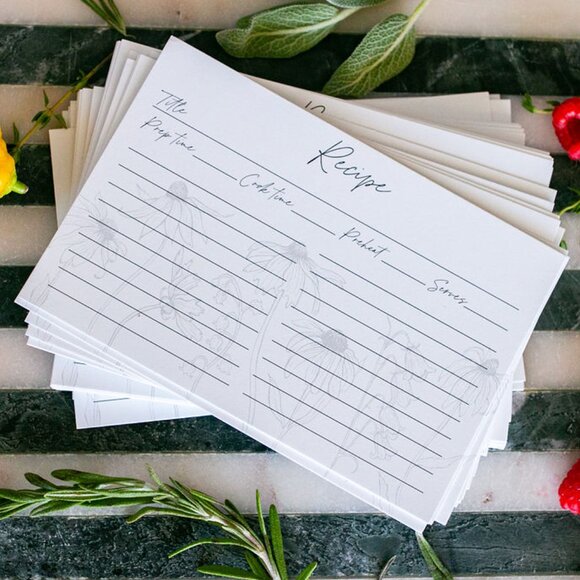 Recipe
Title
Prep time Cook time Preheat Serves